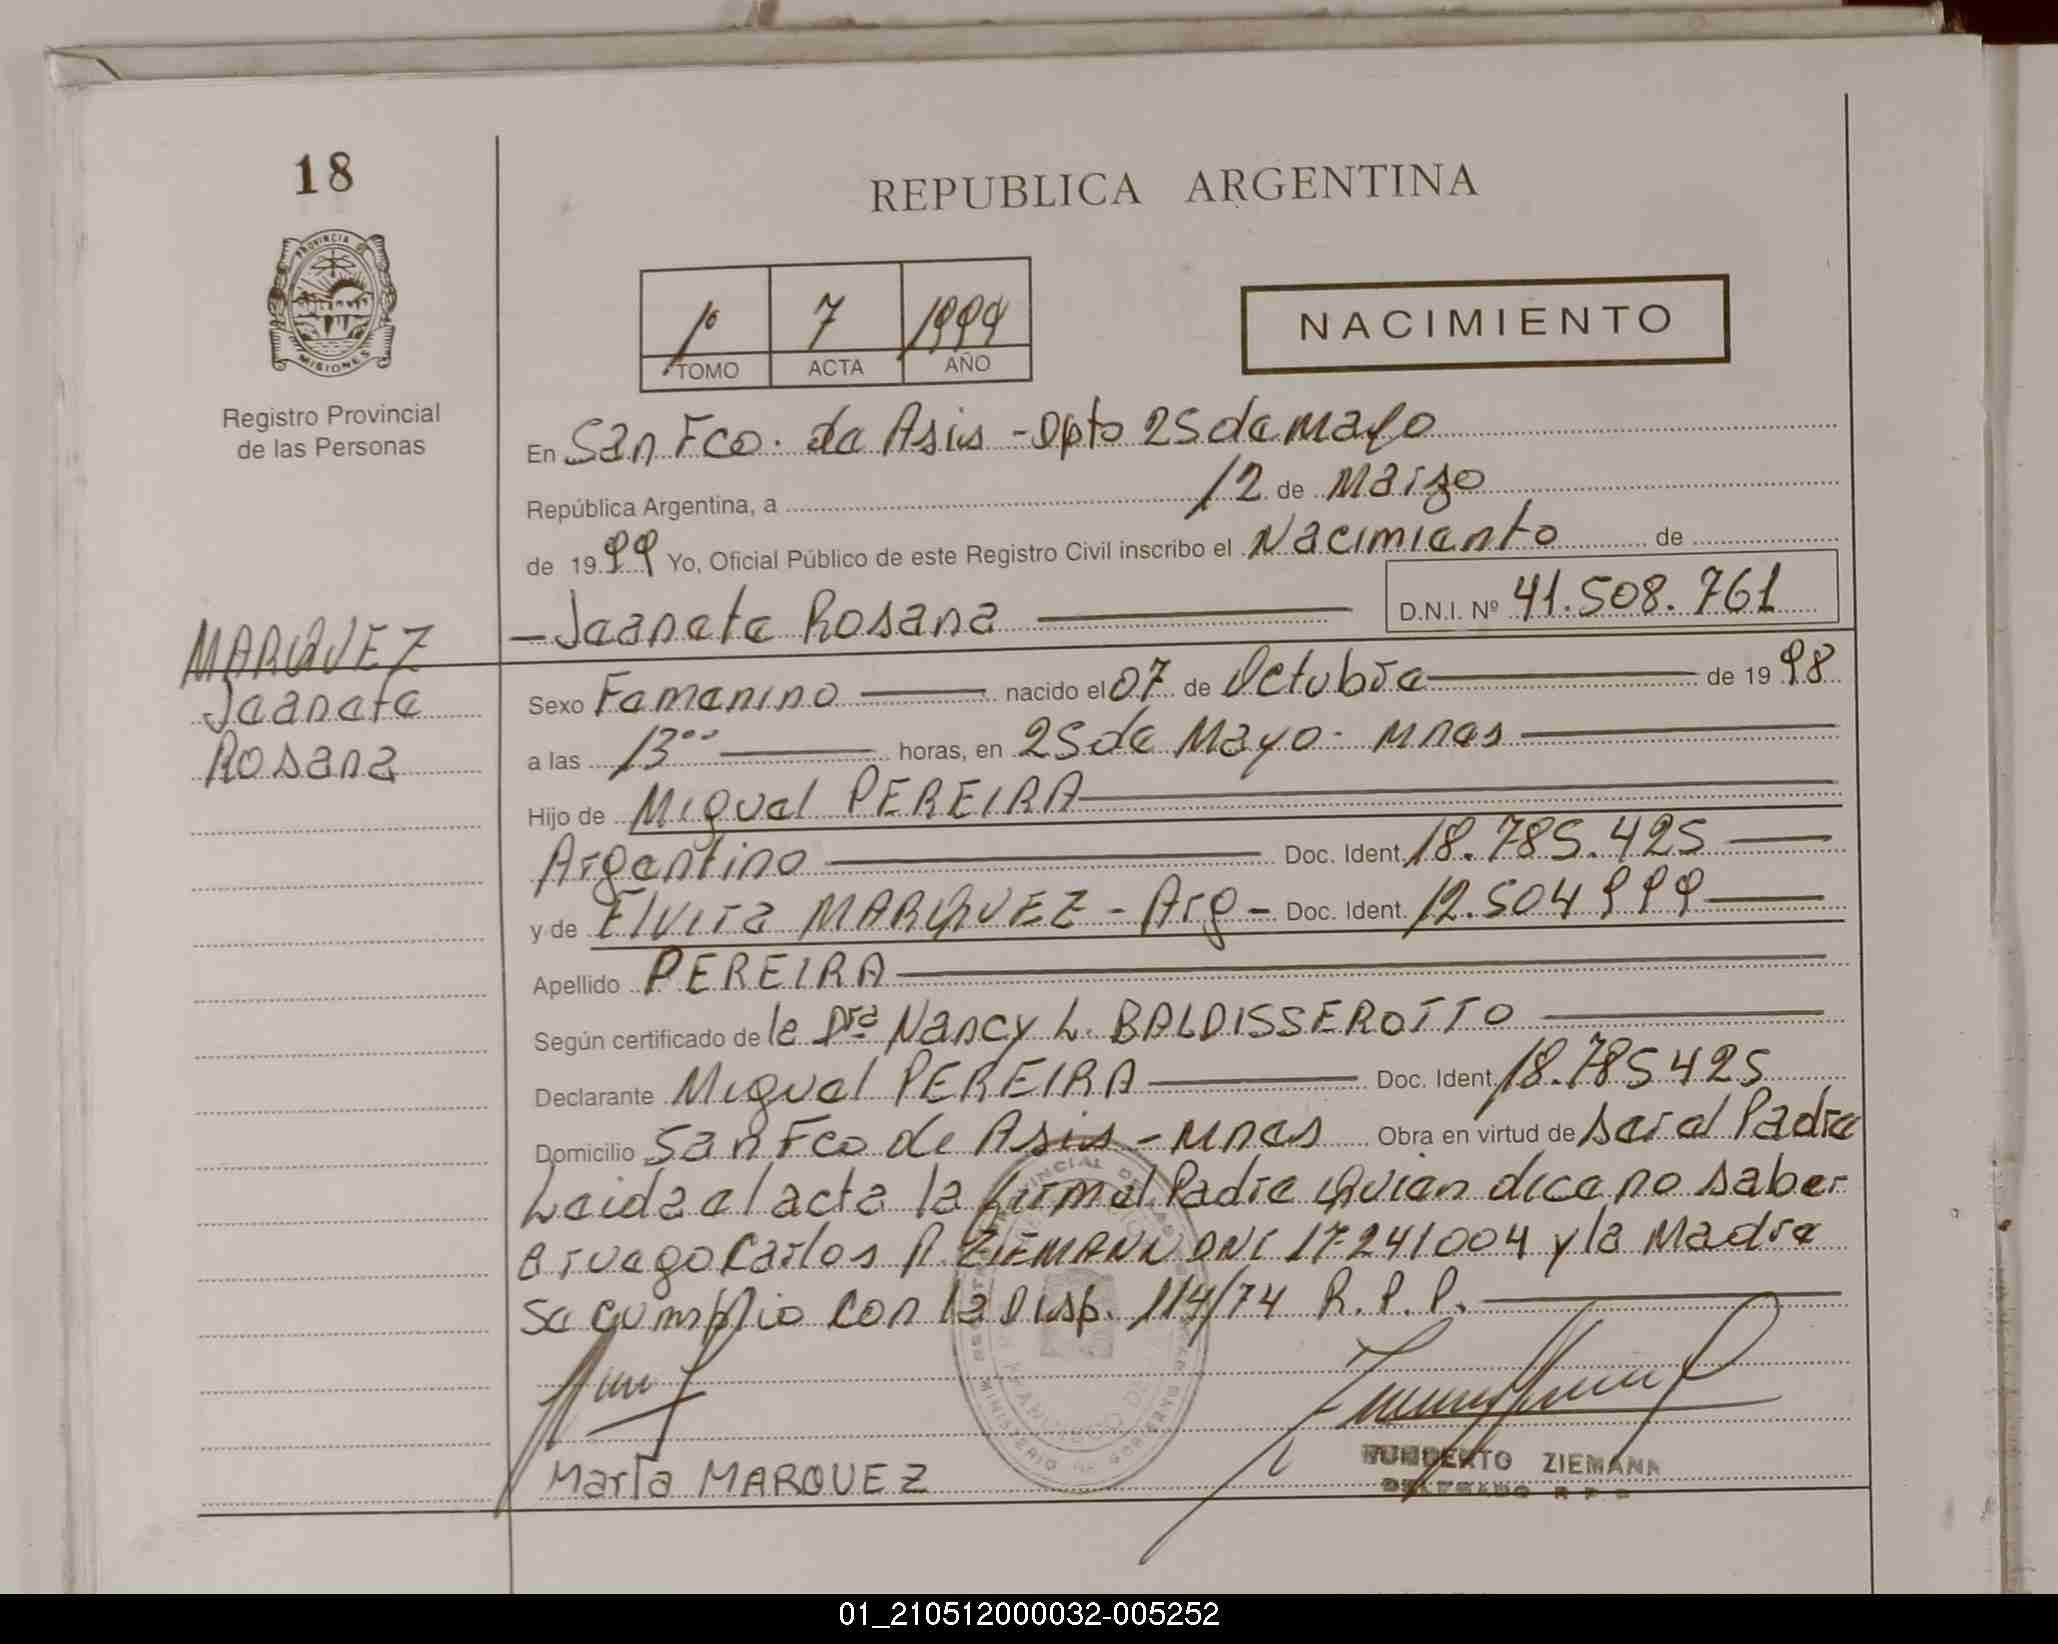 18
REPUBLICA ARGENTINA
PROVINCIA DE
MISIONES
Registro Provincial
de las Personas
1º 7 1999
TOMO ACTA AÑO
NACIMIENTO
En San Fco. de Asis - Dpto 25 de Mayo
República Argentina, a 12 de Marzo
de 1999 Yo, Oficial Público de este Registro Civil inscribo el Nacimiento de
- Jeanete Rosana D.N.I. Nº 41.508.761
MARQUEZ
Jeanete
Rosana
Sexo Femenino nacido el 07 de Octubre de 1998
a las 13ºº horas, en 25 de Mayo - Mnes
Hijo de Miguel PEREIRA
Argentino Doc. Ident. 18.785.425
y de Elvira MARQUEZ - Arg - Doc. Ident. 12.504999
Apellido PEREIRA
Según certificado de la Dra Nancy L. BALDISSEROTTO
Declarante Miguel PEREIRA Doc. Ident. 18.785425
Domicilio San Fco de Asis - Mnes Obra en virtud de ser el Padre
Leida el acta la firma el Padre quien dice no saber
a ruego Carlos A. ZIEMANN DNI 17241004 y la Madre
se cumplio con la Disp. 114/74 R.P.P.
Marta MARQUEZ
HUMBERTO ZIEMANN
01_210512000032-005252